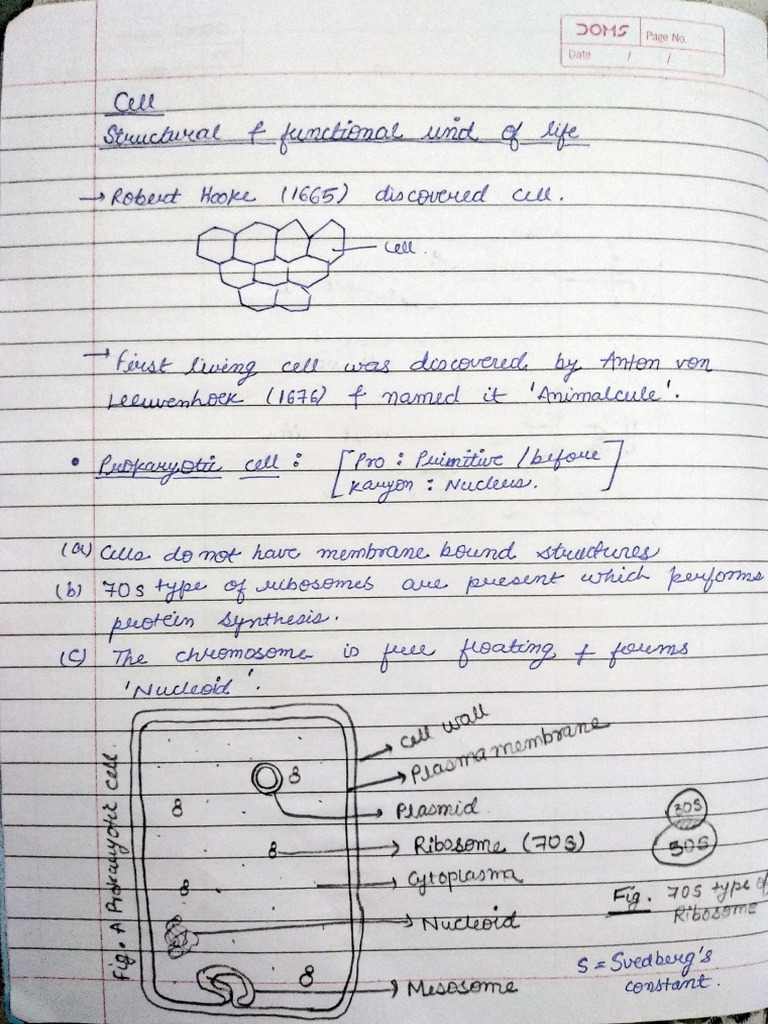 DOMS
Page No.
Date / /
Cell
Structural & functional unit of life
→ Robert Hooke (1665) discovered cell.
Cell.
→ First living cell was discovered by Anton von
Leeuwenhoek (1676) & named it 'Animalcule'.
• Prokaryotic cell : [Pro : Primitive / before
Karyon : Nucleus.]
(a) Cells do not have membrane bound structures
(b) 70s type of ribosomes are present which performs
protein synthesis.
(c) The chromosome is free floating & forms
'Nucleoid'.
Fig. A Prokaryotic cell.
cell wall
Plasma membrane
Plasmid
Ribosome (70S)
Cytoplasma
Nucleoid
Mesosome
30S
50S
Fig. 70s type of
Ribosome
S = Svedberg's
constant.